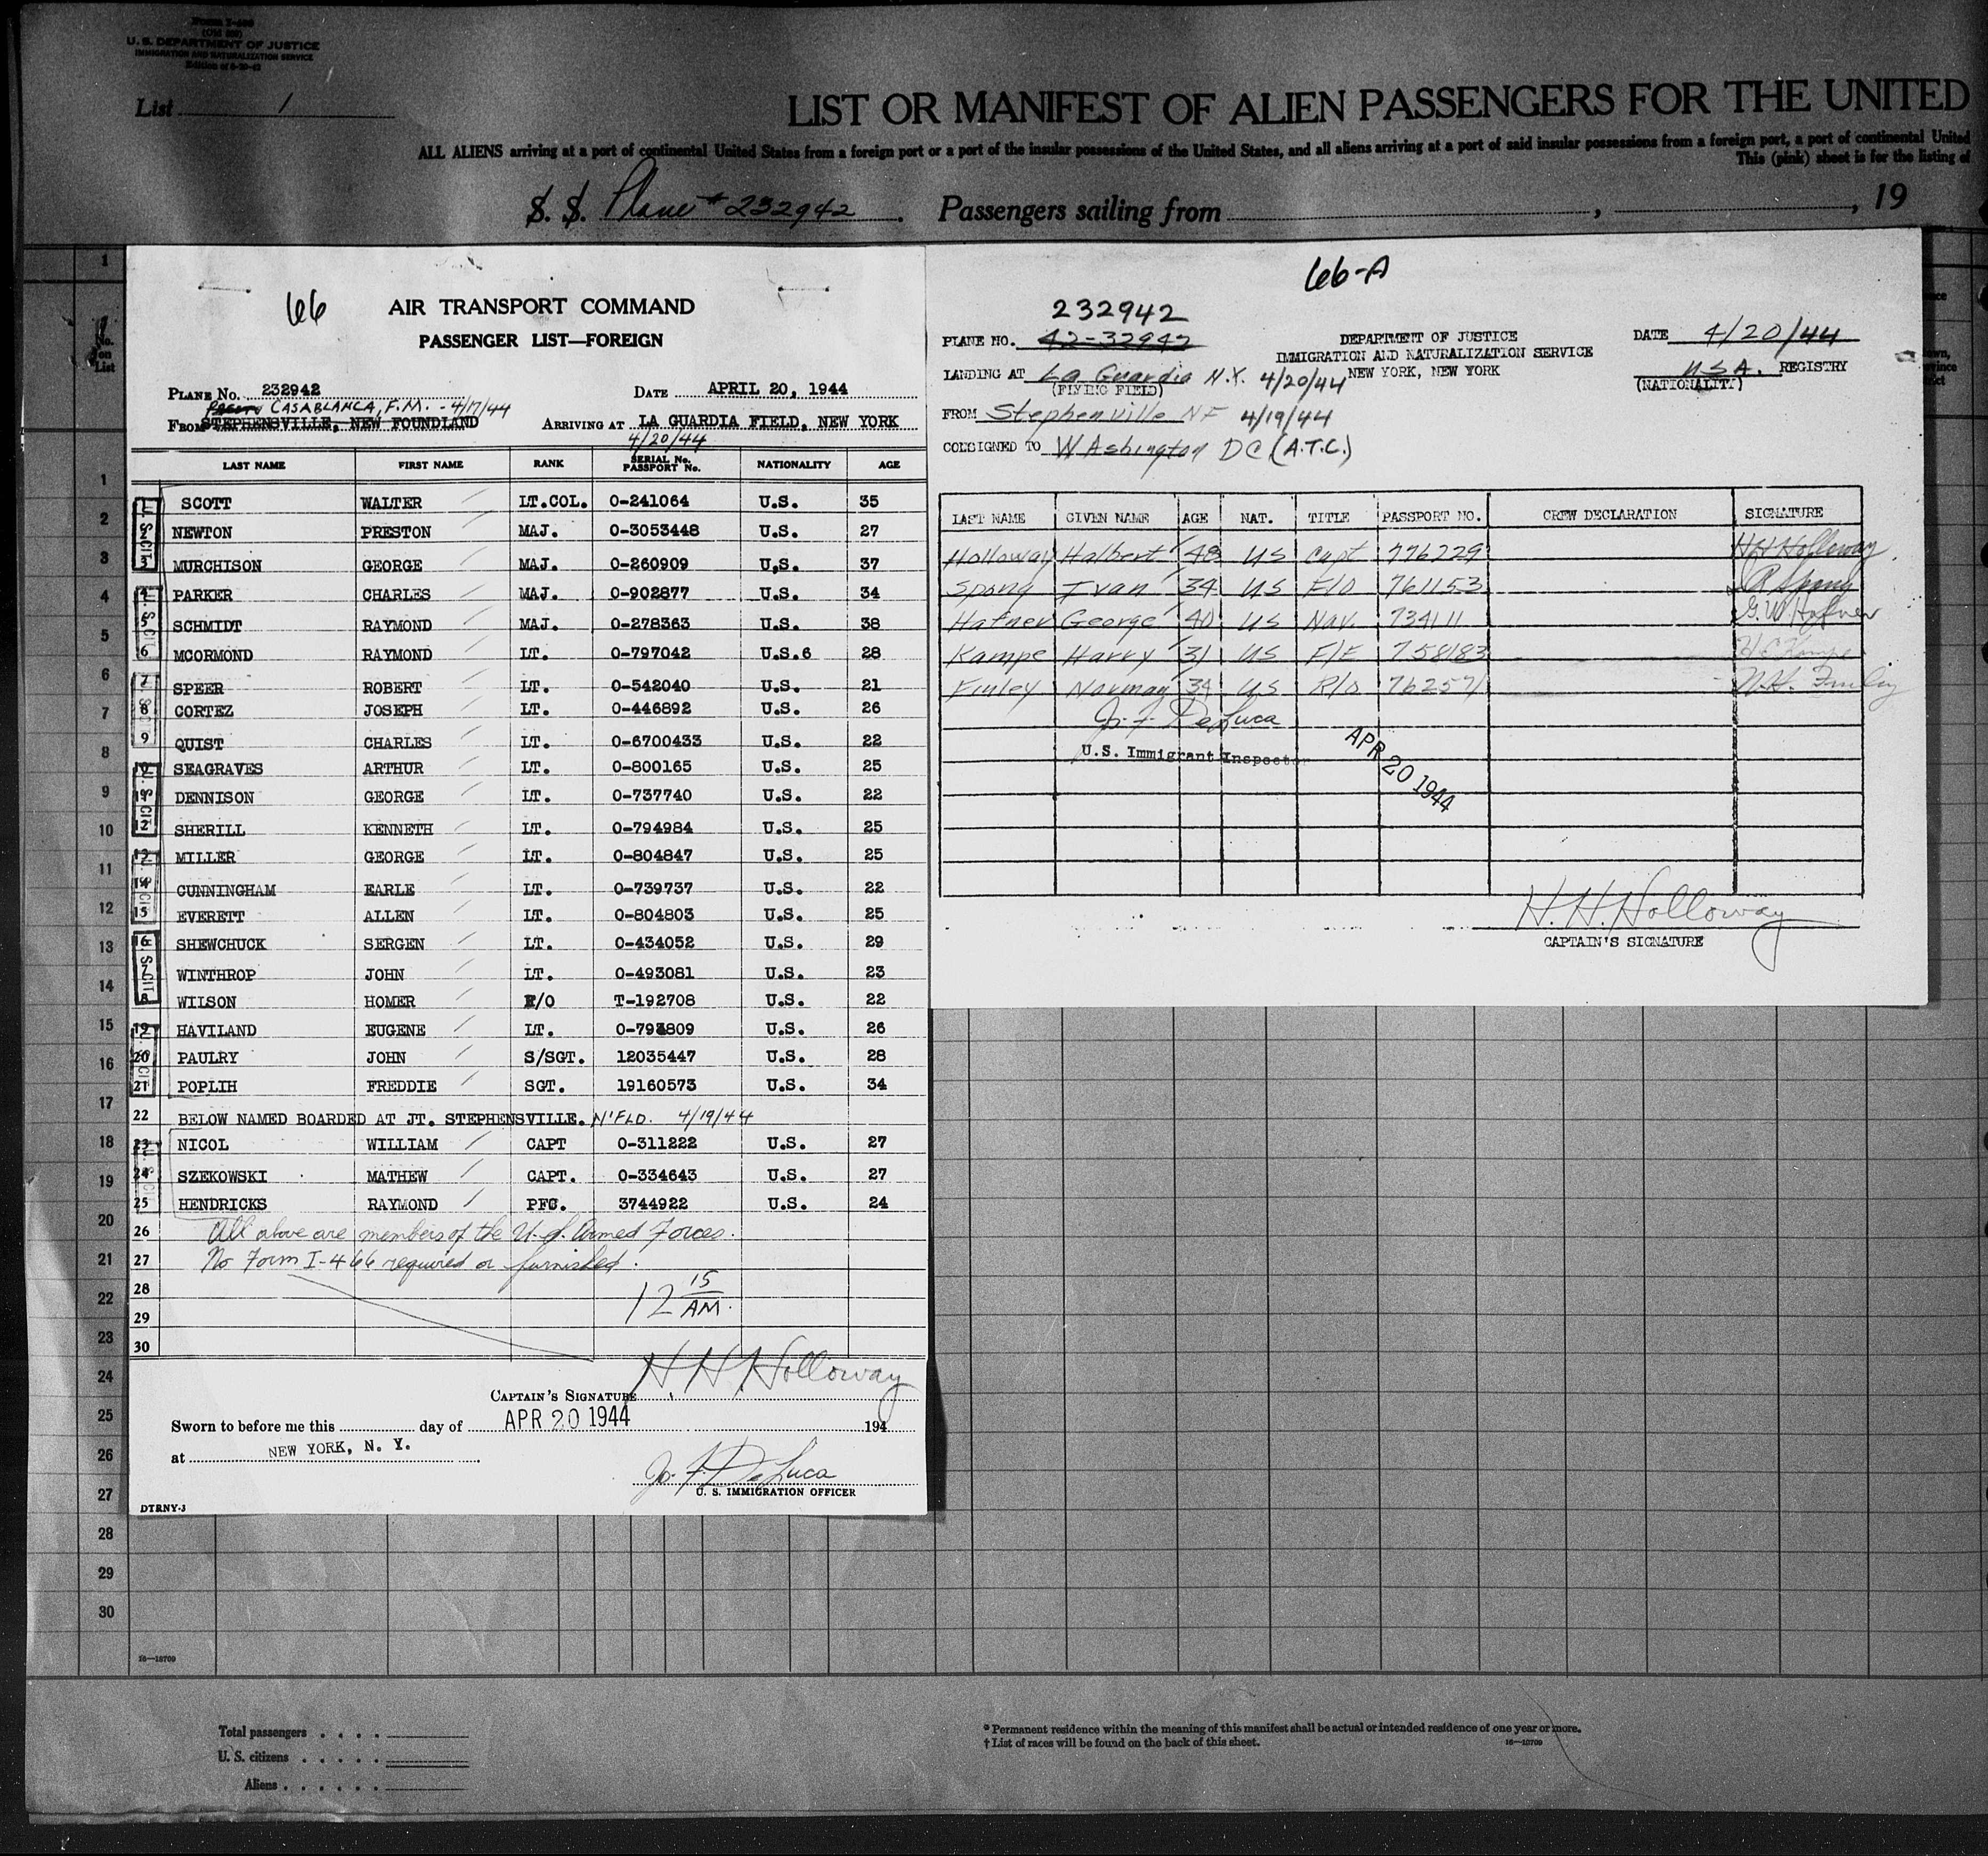 Form I-466
(Old 500)
U. S. DEPARTMENT OF JUSTICE
IMMIGRATION AND NATURALIZATION SERVICE
List 1
LIST OR MANIFEST OF ALIEN PASSENGERS FOR THE UNITED
ALL ALIENS arriving at a port of continental United States from a foreign port or a port of the insular possessions of the United States, and all aliens arriving at a port of said insular possessions from a foreign port, a port of continental United
This (pink) sheet is for the listing of
S. S. Plane # 232942. Passengers sailing from , , 19
No. on List
66 AIR TRANSPORT COMMAND
PASSENGER LIST—FOREIGN
PLANE No. 232942 DATE APRIL 20, 1944
CASABLANCA, F.M. - 4/17/44
FROM STEPHENSVILLE, NEW FOUNDLAND ARRIVING AT LA GUARDIA FIELD, NEW YORK
4/20/44
LAST NAME FIRST NAME RANK SERIAL No. PASSPORT No. NATIONALITY AGE
SCOTT WALTER LT.COL. O-241064 U.S. 35
2 NEWTON PRESTON MAJ. O-3053448 U.S. 27
3 MURCHISON GEORGE MAJ. O-260909 U.S. 37
4 PARKER CHARLES MAJ. O-902877 U.S. 34
5 SCHMIDT RAYMOND MAJ. O-278363 U.S. 38
6 MCORMOND RAYMOND LT. O-797042 U.S.6 28
7 SPEER ROBERT LT. O-542040 U.S. 21
8 CORTEZ JOSEPH LT. O-446892 U.S. 26
9 QUIST CHARLES LT. O-6700433 U.S. 22
10 SEAGRAVES ARTHUR LT. O-800165 U.S. 25
11 DENNISON GEORGE LT. O-737740 U.S. 22
12 SHERILL KENNETH LT. O-794984 U.S. 25
13 MILLER GEORGE LT. O-804847 U.S. 25
14 CUNNINGHAM EARLE LT. O-739737 U.S. 22
15 EVERETT ALLEN LT. O-804803 U.S. 25
16 SHEWCHUCK SERGEN LT. O-434052 U.S. 29
7 WINTHROP JOHN LT. O-493081 U.S. 23
8 WILSON HOMER F/O T-192708 U.S. 22
19 HAVILAND EUGENE LT. U.S. 26
20 PAULRY JOHN S/SGT. 12035447 U.S. 28
21 POPLIH FREDDIE SGT. 19160573 U.S. 34
22 BELOW NAMED BOARDED AT JT. STEPHENSVILLE. N'FLD. 4/19/44
23 NICOL WILLIAM CAPT O-311222 U.S. 27
24 SZEKOWSKI MATHEW CAPT. O-334643 U.S. 27
25 HENDRICKS RAYMOND PFC. 3744922 U.S. 24
26 All above are members of the U.S. Armed Forces.
27 No Form I-466 required or furnished.
28 12 15 AM.
29
30
CAPTAIN'S SIGNATURE H H Holloway
Sworn to before me this day of APR 20 1944 194
at NEW YORK, N. Y.
Jo. F. DeLuca
U. S. IMMIGRATION OFFICER
DTRNY-3
66-A
232942
PLANE NO. 42-32942 DEPARTMENT OF JUSTICE DATE 4/20/44
IMMIGRATION AND NATURALIZATION SERVICE
LANDING AT La Guardia N.Y. 4/20/44 NEW YORK, NEW YORK USA. REGISTRY
(FLYING FIELD) (NATIONALITY)
FROM Stephenville NF 4/19/44
CONSIGNED TO Washington DC (A.T.C.)
LAST NAME GIVEN NAME AGE NAT. TITLE PASSPORT NO. CREW DECLARATION SIGNATURE
Holloway Halbert 48 US Capt 776229 HH Holloway
Spong Ivan 34 US F/O 761153 Spong
Hafner George 40 US Nav. 734111 G.W Hafner
Kampe Harry 31 US F/E 758183 H C Kampe
Finley Norman 34 US R/O 762571 N.H. Finley
Jo. F. DeLuca
U.S. Immigrant Inspector
APR 20 1944
H. H. Holloway
CAPTAIN'S SIGNATURE
1
2
3
4
5
6
7
8
9
10
11
12
13
14
15
16
17
18
19
20
21
22
23
24
25
26
27
28
29
30
16—18709
Total passengers . . . .
U. S. citizens . . . . .
Aliens . . . . . .
* Permanent residence within the meaning of this manifest shall be actual or intended residence of one year or more.
† List of races will be found on the back of this sheet.
16—18709